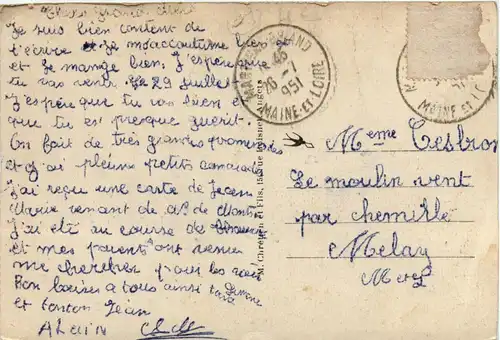 Chère Grand-Mère
Je suis bien content de
t'écrire Je m'accoutume bien et
et Je mange bien, J'espère que
tu vas venir le 29 Juillet
J'espère que tu vas bien et
que tu es presque guérit.
On fait de très grandes promenades
et j'ai pleins petits camarades
J'ai reçu une carte de Jean
Marie venant de
J'ai été au course de
et mes parent ont venu
me chercher pour les voir
Bon baises a tous ainsi tata
et tonton Jean
Alain
MAINE-ET-LOIRE
26 -1
1951
M. Chrétien et Fils, 15
MAINE-ET-L
Meme Tesbron
Le moulin vent
par chemillé
Melay
M et L